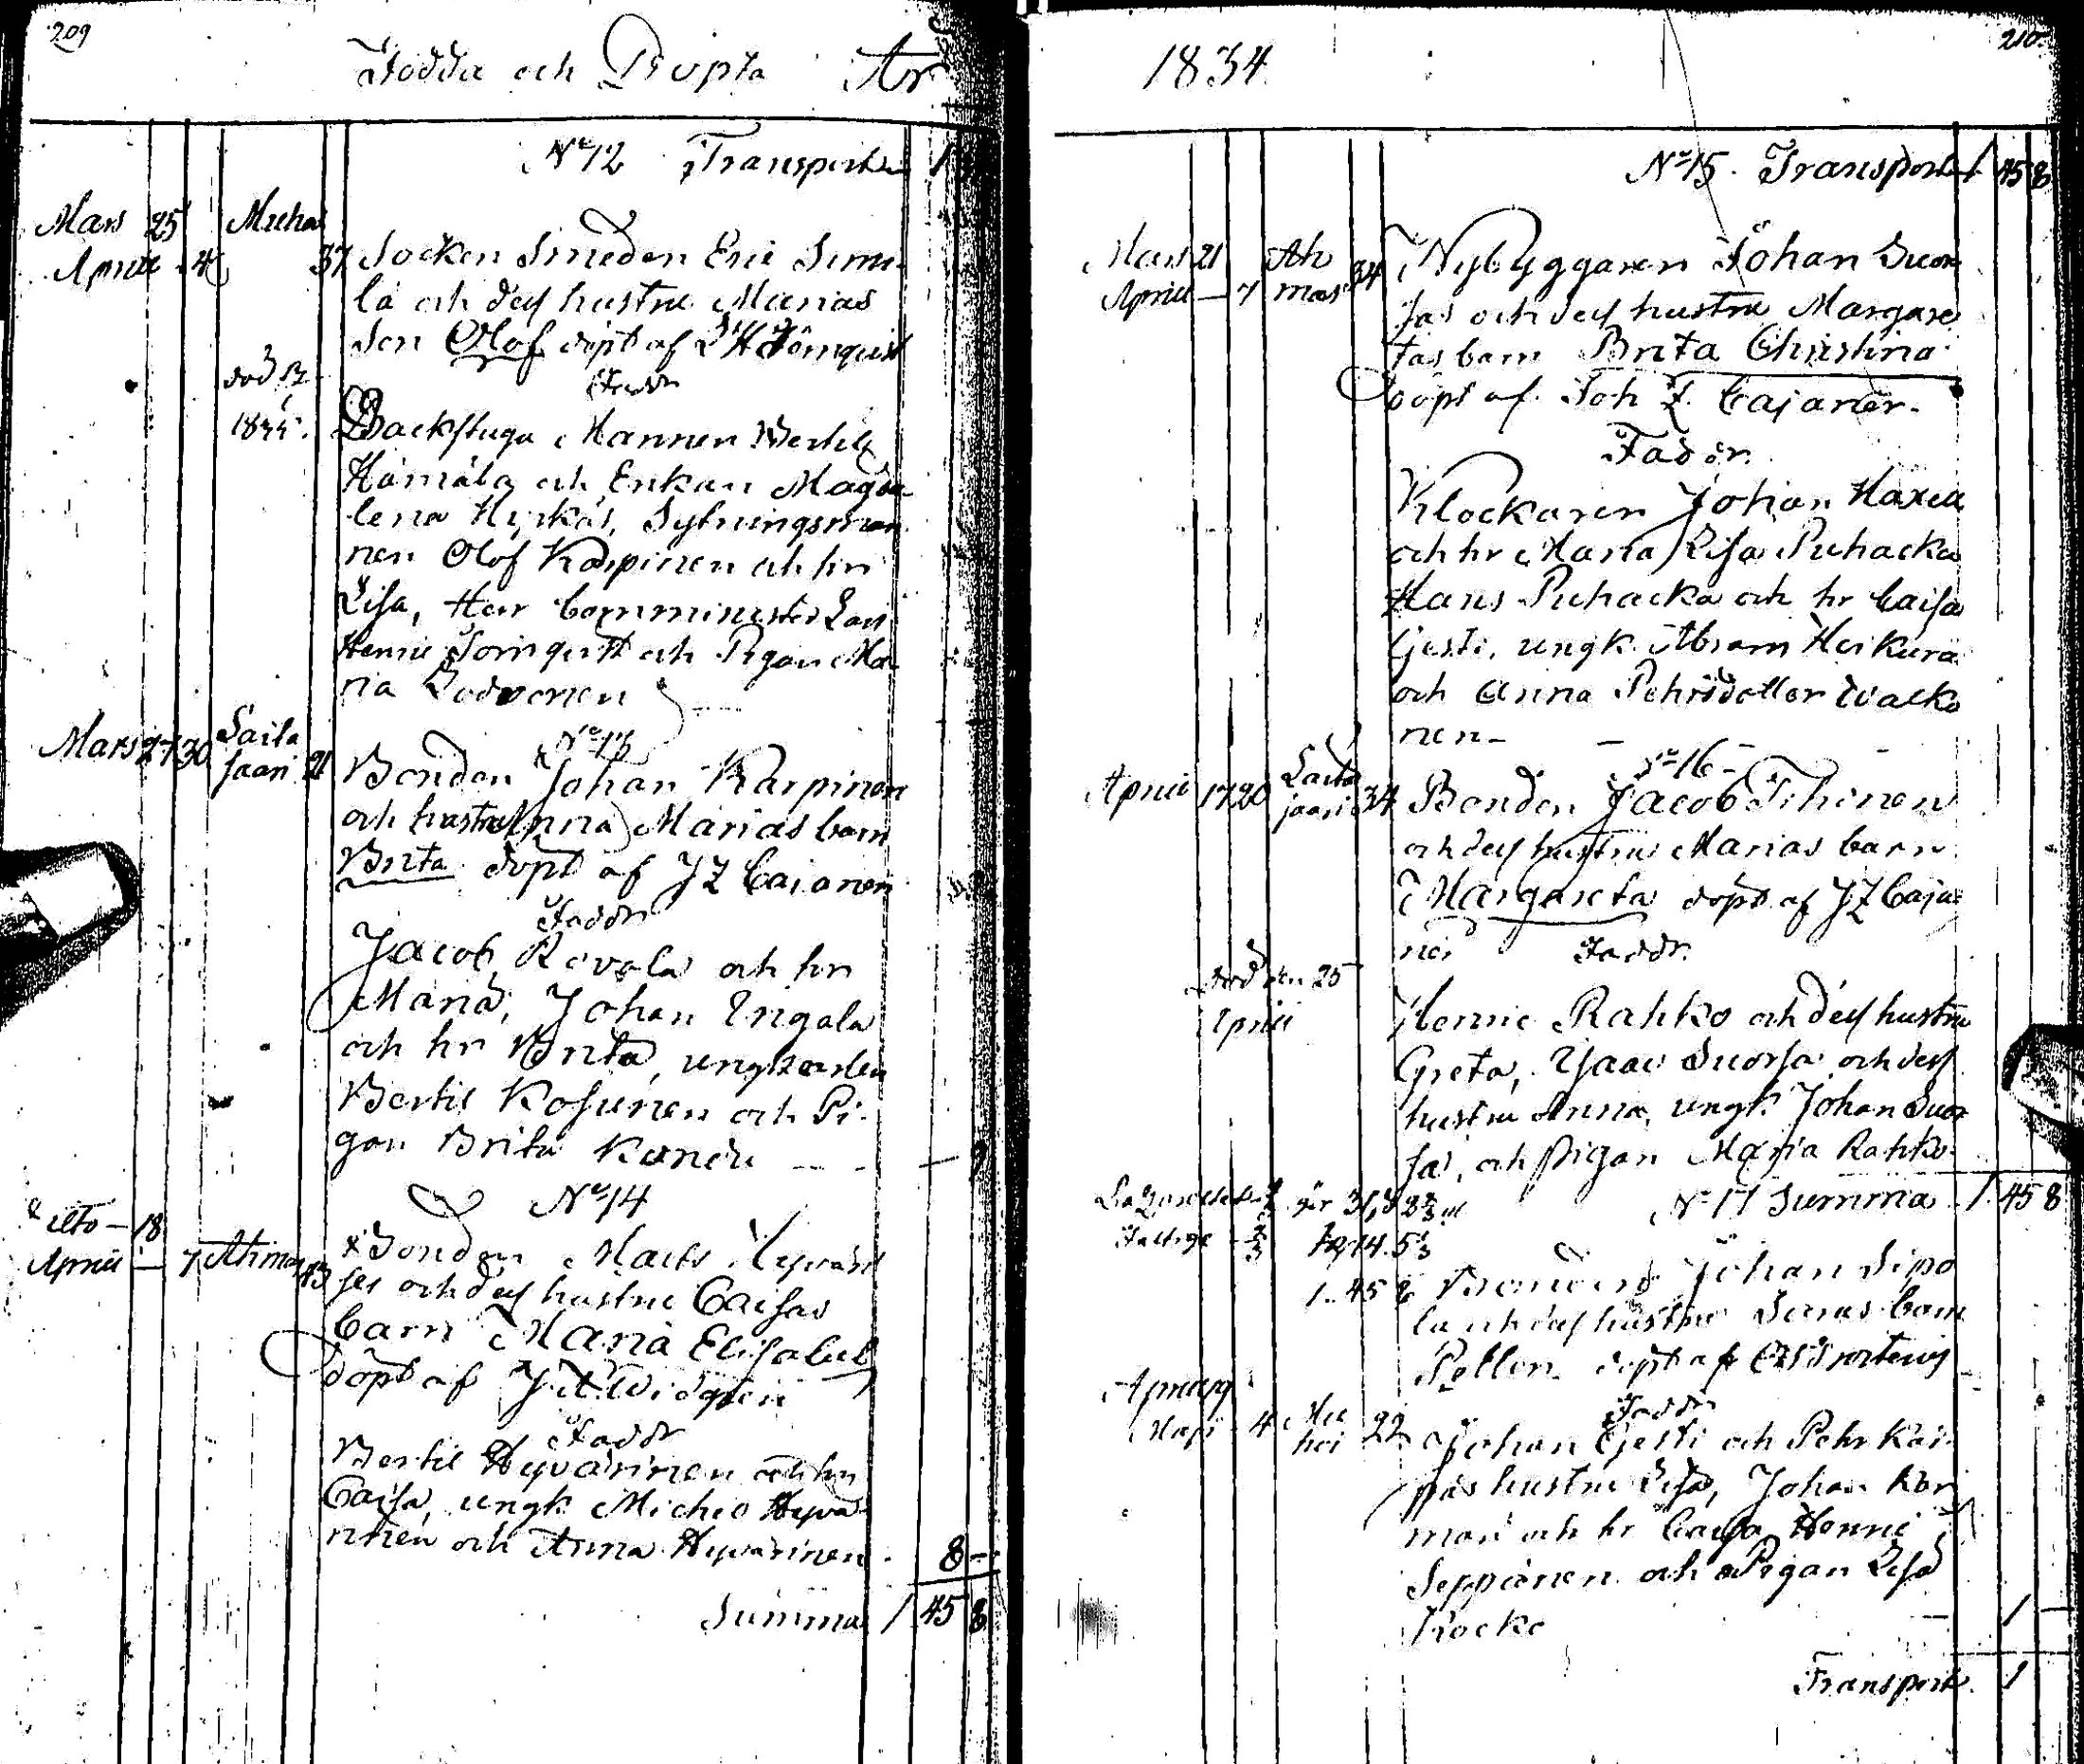 209
Födda och Döpta År
No 12 Transport 1
Mars 25 Michas
April 4 37 Socken Smeden Eric Simu
la och dess hustru Marias
Son Olof döpt af L H Törnquist
Faddr
död
1835. Backstugu Mannen Bertil
Hämälä och Enkan Magda
lena Hyrkäs, Sytningsman
nen Olof Karpinen och hru
Lisa, Herr Comminister Lars
Henric Törnquist och Pigan Ma
ria
No 13
Mars 27 30 Saila
saari 21 Bonden Johan Karpinen
och hustru Anna Marias barn
Brita döpt af J Z Cajaner
Faddr
Jacob Rovola och hru
Maria, Johan Ingala
och hr Brita, ungkarlen
Bertil Kosunen och Pi
gan Brita
No 14
dito 18
April 7 Ahmas 13 Bonden Matts Hyväri
ses och dess hustru Caisas
barn Maria Elisabet
döpt af J A Widgren
Faddr
Bertil Hyvärinen och hru
Caisa, ungk Michel Hyvä
rinen och Anna Hyvärinen 8 -
Summa 1 45 8
1834
210
No 15. Transport 1 45 8
Mars 21 Ah
April 7 mas 34 Nybyggaren Johan Suor
sas och dess hustru Margare
tas barn Brita Christina
döpt af Joh Z. Cajaner.
Faddr.
Klockaren Johan Haxell
och hr Maria Lisa Puhacka
Hans Puhacka och hr Caisa
Gesti, ungk. Abram Heikura
och Anna Pehrsdotter Walko
nen
No 16
April 17 20 Saila
saari 34 Bonden Jacob Tihinen
och dess hustrus Marias barn
Margareta döpt af J Z Caja
ner Faddr.
död den 25
April Henric Rahko och dess hustru
Greta, Isaac Suorsa och dess
hustru Anna, ungk. Johan Suor
sa, och pigan Maria Rahko
No 17 Summa 1. 45 8
1. 45 8 Bondens Johan Sipo
la och dess hustrus barn
Petter döpt af
April
Maji 4 22 Faddr
Johan Gesti och Pehr Kar
pas hustru Lisa, Johan Kor
man och hr Caisa, Henric
Seppänen och Pigan Lisa
1
Transport 1